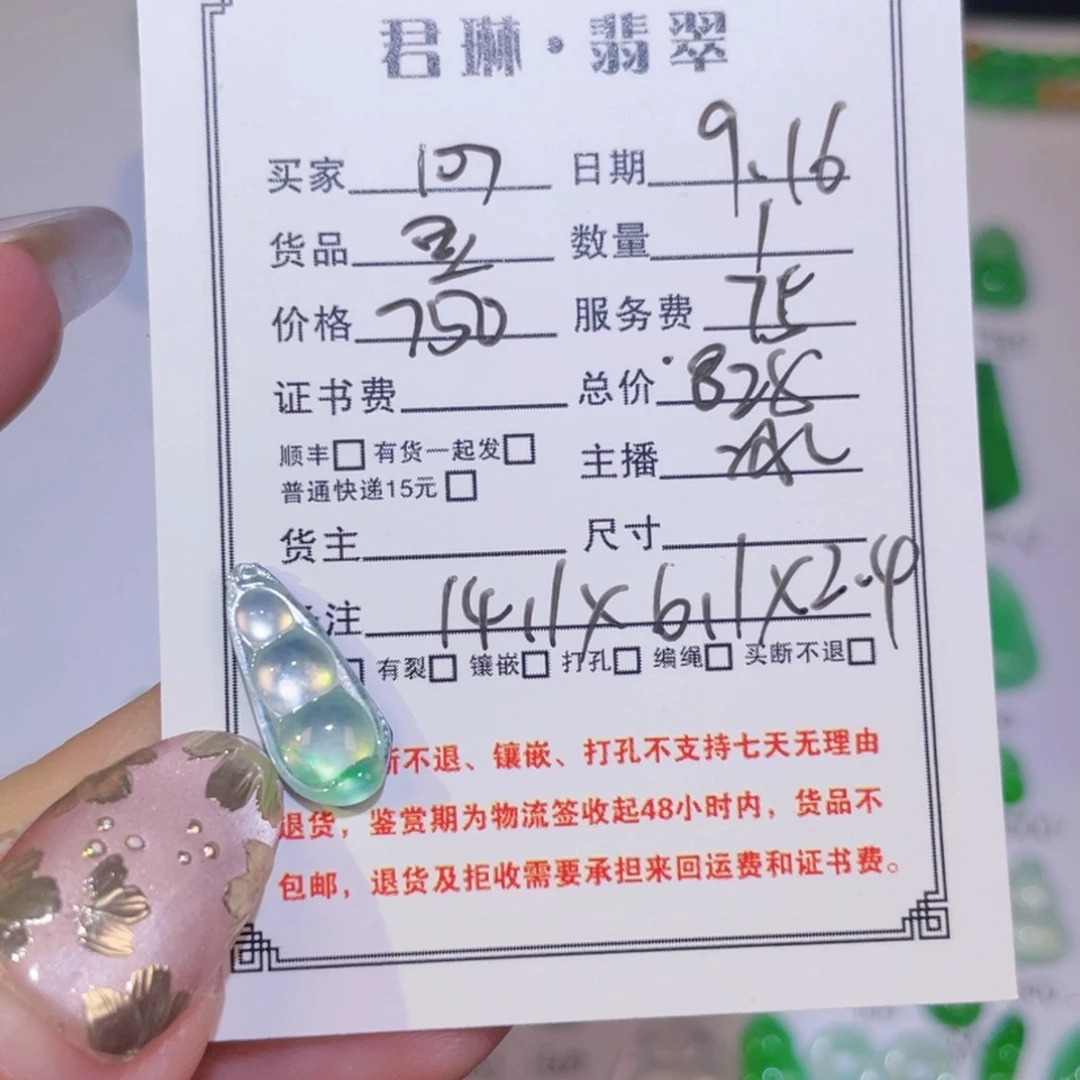 君琳·翡翠
买家 日期 9.16
货品 数量 1
价格 750 服务费 75
证书费 总价 828
顺丰□ 有货一起发□ 主播
普通快递15元□
货主 尺寸
注 14.1X6.1X2.4
有裂□ 镶嵌□ 打孔□ 编绳□ 买断不退□
不退、镶嵌、打孔不支持七天无理由
退货,鉴赏期为物流签收起48小时内,货品不
包邮,退货及拒收需要承担来回运费和证书费。